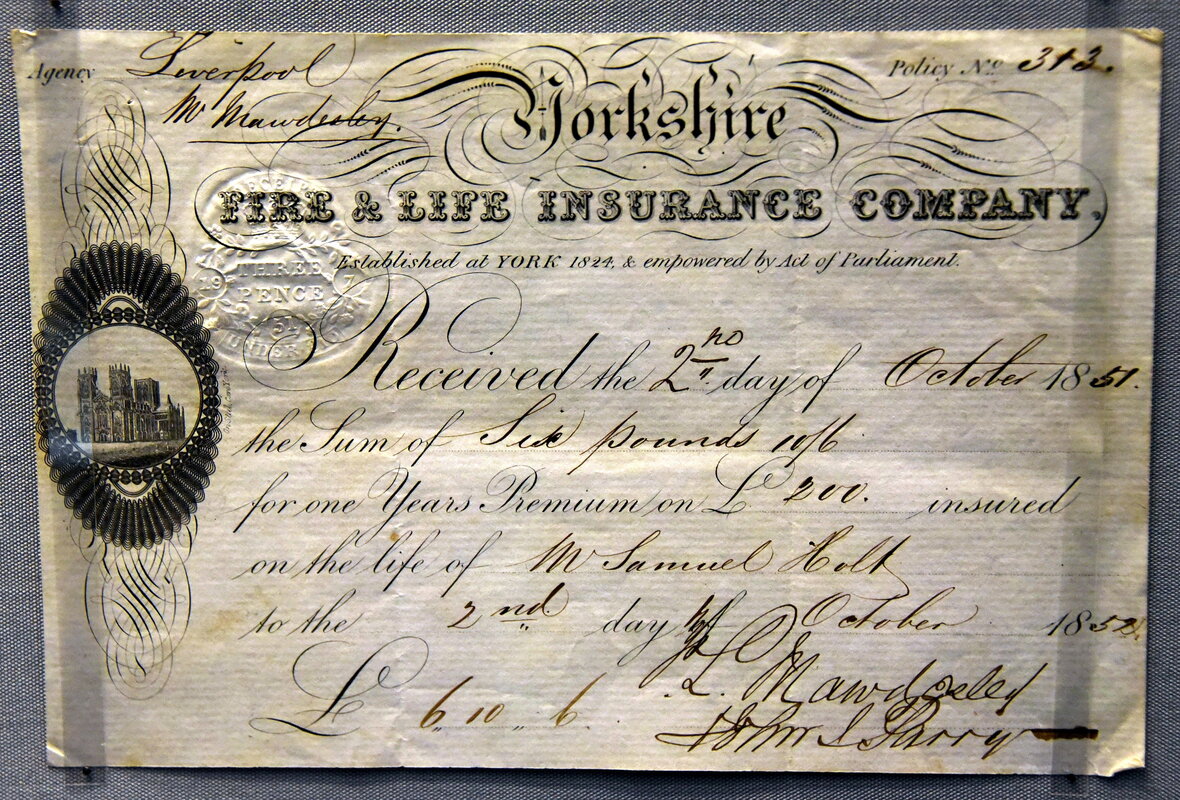 Agency Liverpool
Mr Mawdesley.
Policy No 343.
Yorkshire
FIRE & LIFE INSURANCE COMPANY,
Established at YORK 1824, & empowered by Act of Parliament.
THREE
PENCE
UNDER
Received the 2nd day of October 1851.
the Sum of Six pounds 10/6
for one Years Premium on £ 200. insured
on the life of Mr Samuel Holt
to the 2nd day of October 1852
£ 6 " 10 " 6
L. Mawdesley
John S Parry